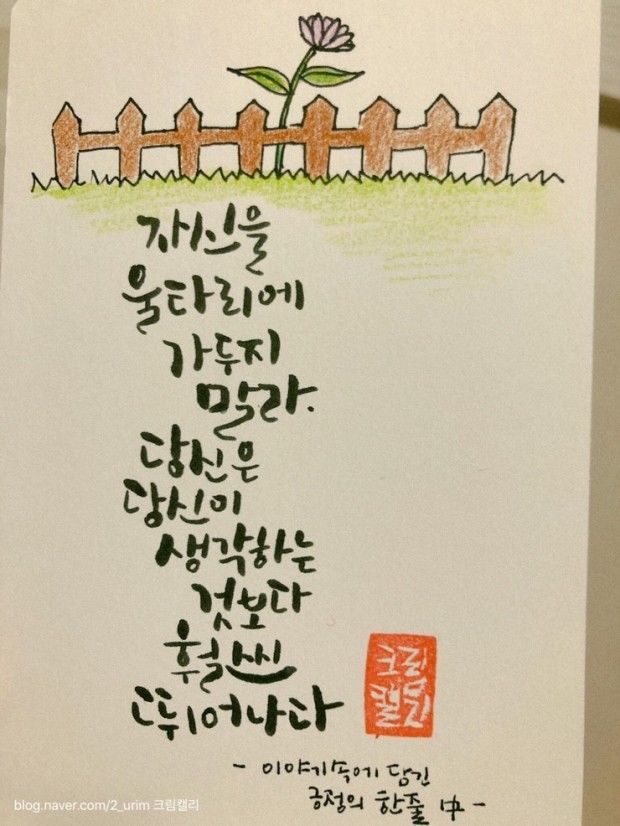 자신을
울타리에
가두지
말라.
당신은
당신이
생각하는
것보다
훨씬
뛰어나다
크림
캘리
- 이야기속에 담긴
긍정의 한줄 中 -
blog.naver.com/2_urim 크림캘리